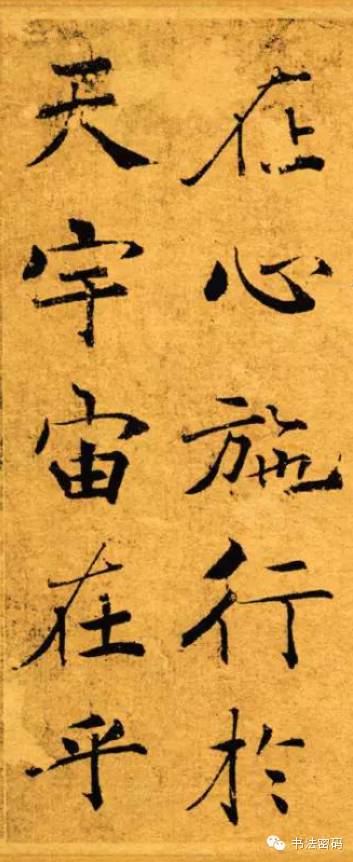 在心施行於
天宇宙在乎
书法密码